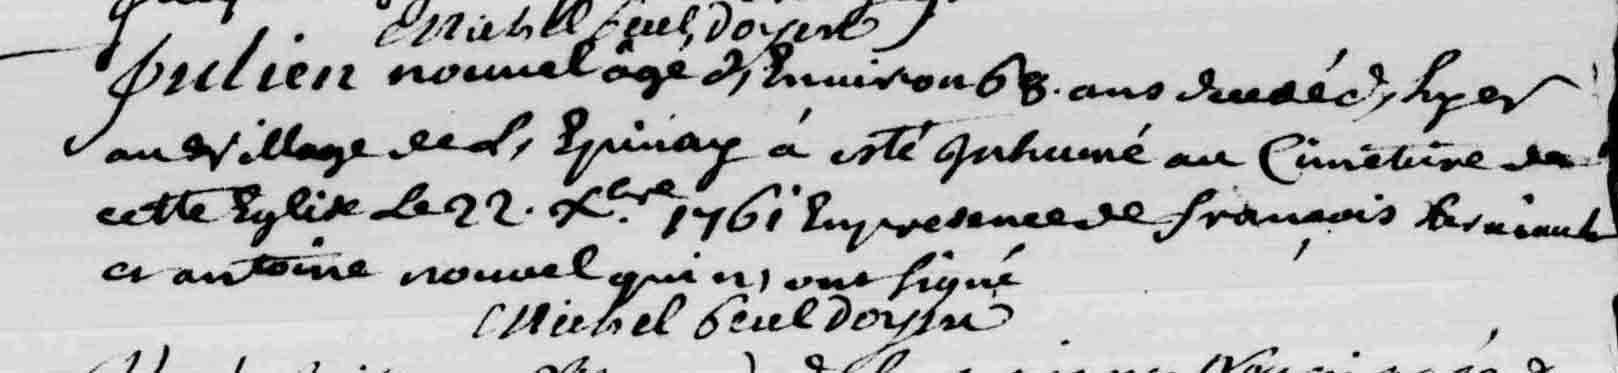 Michel beul, Doyen
Julien nouuel âgé d, Enuiron 68. ans decedé d, hyer
au village de L, Epinay á esté Jnhumé au Cimetiere de
cette Eglise Le 22. Xbre 1761 En presence de françois
et antoine nouuel qui n, ont signé
Michel beul doyen